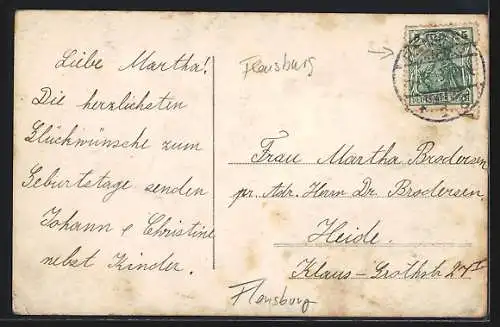 Liebe Martha!
Die herzlichsten
Glückwünsche zum
Geburtstage senden
Johann & Christine
nebst Kinder.
Flensburg
Frau Martha Brodersen
pr. Adr. Herrn Dr. Brodersen.
Heide.
Klaus-Grothstr.
Flensburg